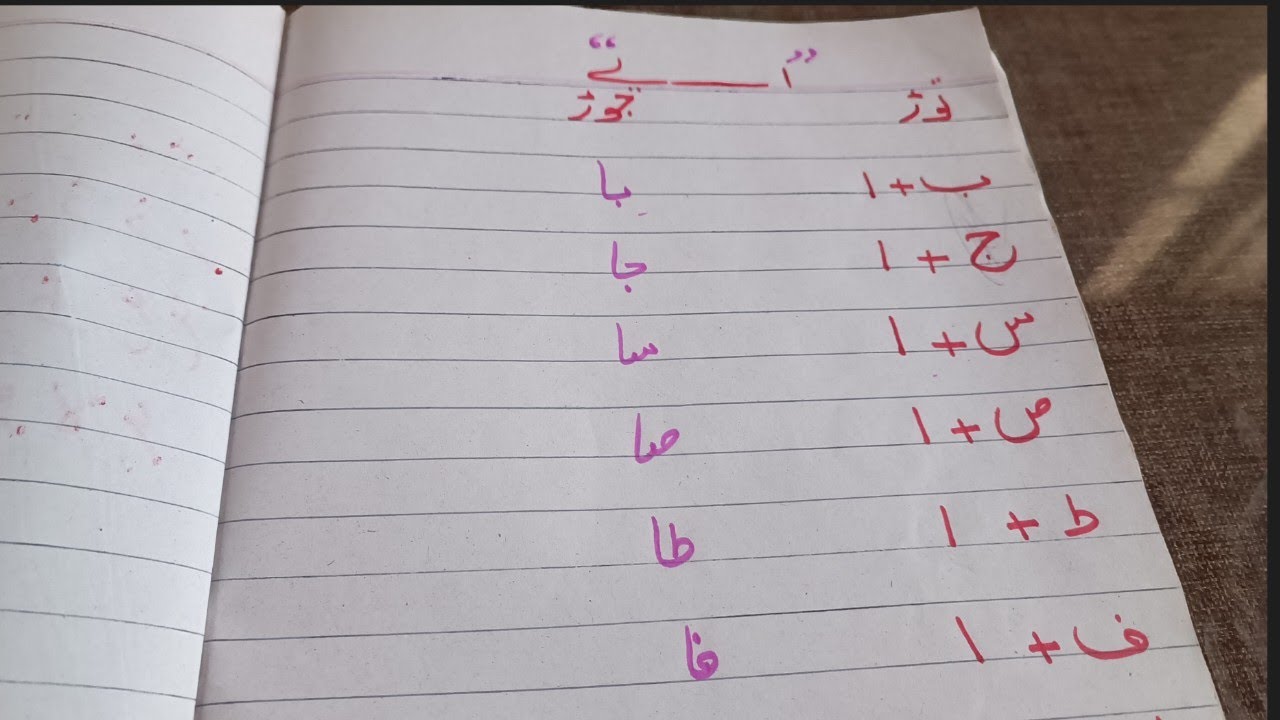 ”ا ــــــ ے“
توڑ جوڑ
ب + ا با
ج + ا جا
س + ا سا
ص + ا صا
ط + ا طا
ف + ا فا